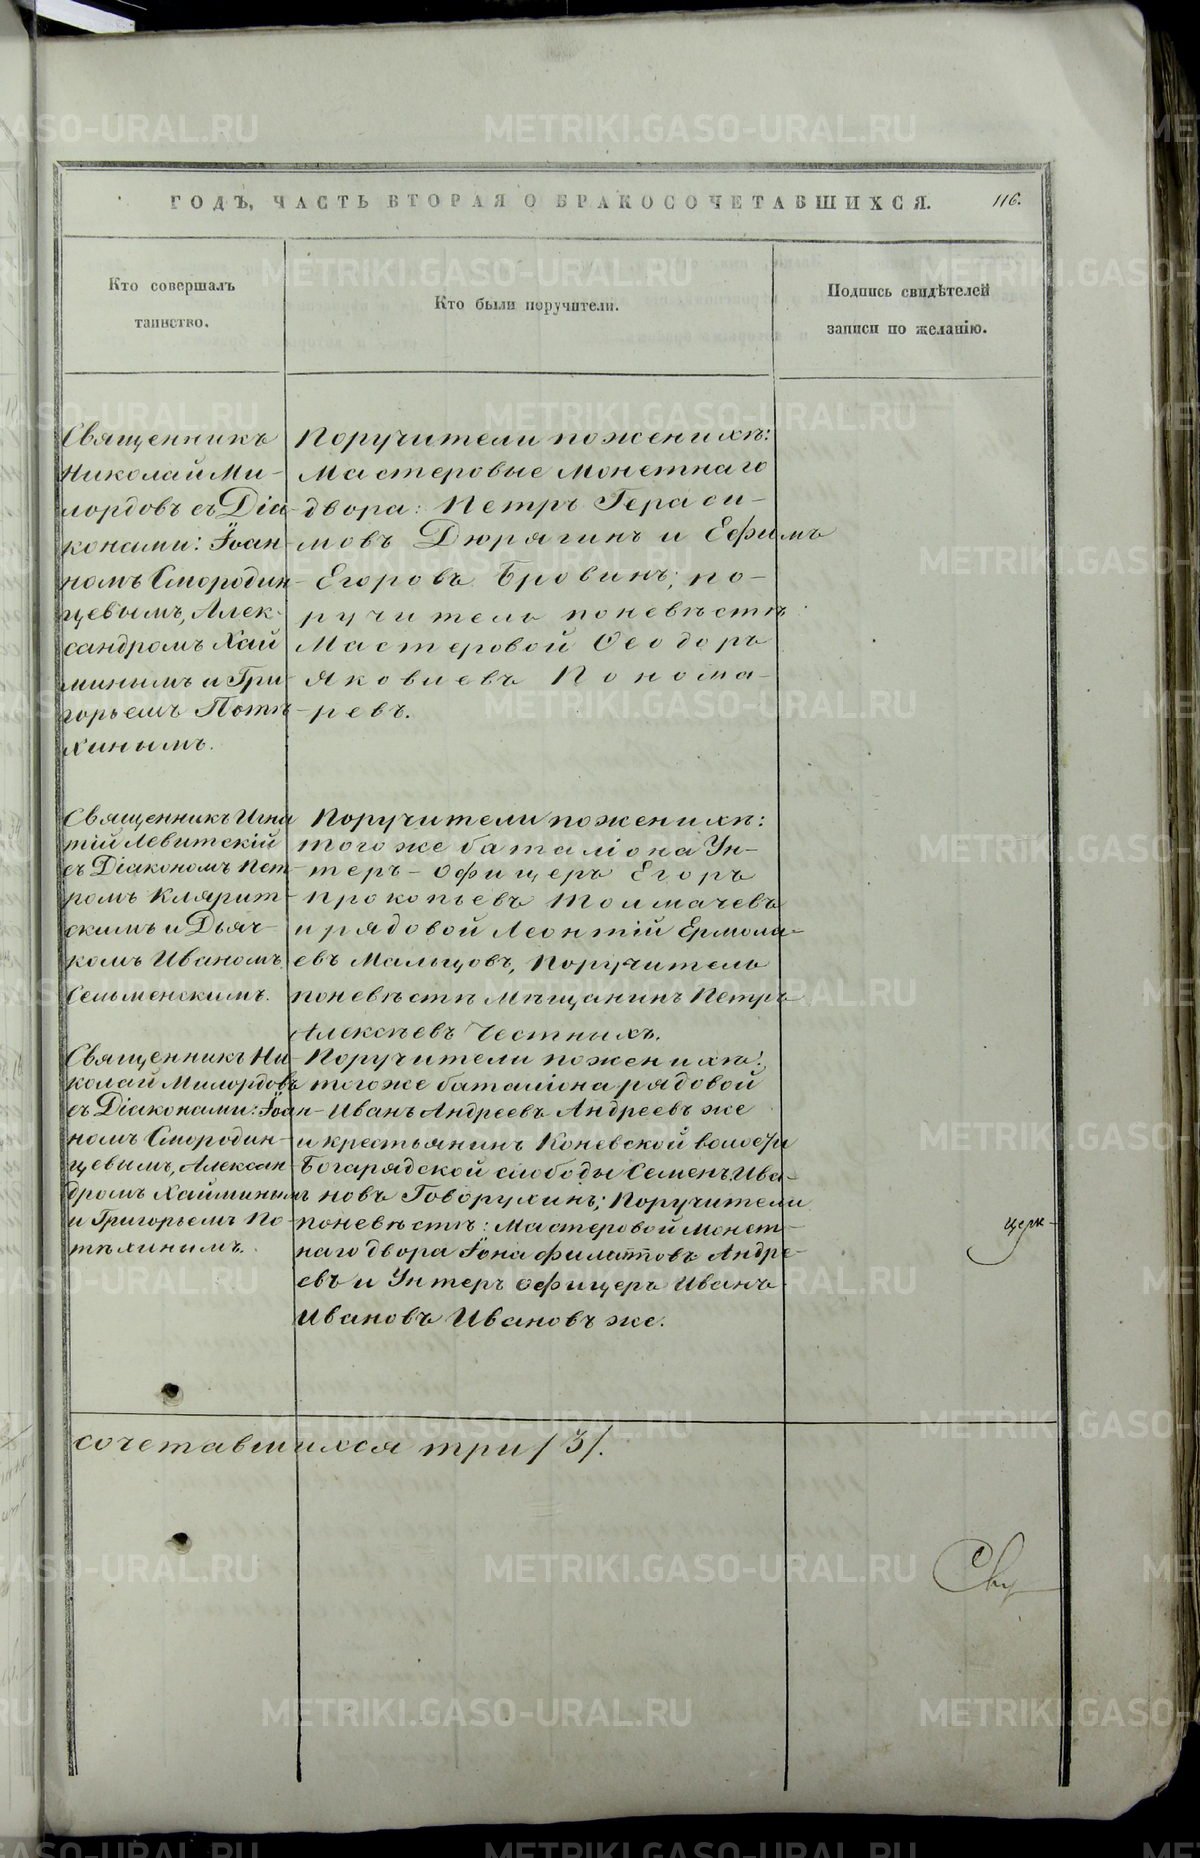 ГОДЪ, ЧАСТЬ ВТОРАЯ О БРАКОСОЧЕТАВШИХСЯ.
116.
Кто совершалъ
таинство.
Кто были поручители.
Подпись свидѣтелей
записи по желанію.
Священникъ
Николай Ми-
лордовъ съ Діа-
конами: Іоан-
номъ Смородин-
цевымъ, Алек-
сандромъ Хай
минымъ и Гри-
горьемъ Потѣ-
хинымъ.
Поручители по женихѣ:
Мастеровые Монетнаго
двора: Петръ Гераси-
мовъ Дюрягинъ и Ефимъ
Егоровъ Бровинъ; по-
ручитель по невѣстѣ
Мастеровой Ѳеодоръ
Яковлевъ Понома-
ревъ.
Священникъ Игна
тій Левитскій
съ Діакономъ Пет-
ромъ Кляритскимъ и Дьяч-
комъ Иваномъ
Сельменскимъ.
Поручители по женихѣ:
того же баталіона Ун-
теръ-офицеръ Егоръ
Прокопьевъ Толмачевъ
и рядовой Леонтій Ермола-
евъ Мальцовъ, Поручитель
по невѣстѣ Мѣщанинъ Петръ
Алексѣевъ Честныхъ.
Священникъ Ни-
колай Милордовъ
съ Діаконами: Іоан-
номъ Смородин-
цевымъ, Алексан-
дромъ Хайминым
и Григорьемъ По-
тѣхинымъ.
Поручители по женихѣ:
того же баталіона рядовой
Иванъ Андреевъ Андреевъ же
и крестьянинъ Коневской волости
Богарядской слободы Семенъ Ива-
новъ Говорухинъ; Поручители
по невѣстѣ: Мастеровой Монет-
наго двора Іона Филатовъ Андре-
евъ и Унтеръ офицеръ Иванъ
Ивановъ Ивановъ же.
церк-
сочетавшихся три /3/.
METRIKI.GASO-URAL.RU